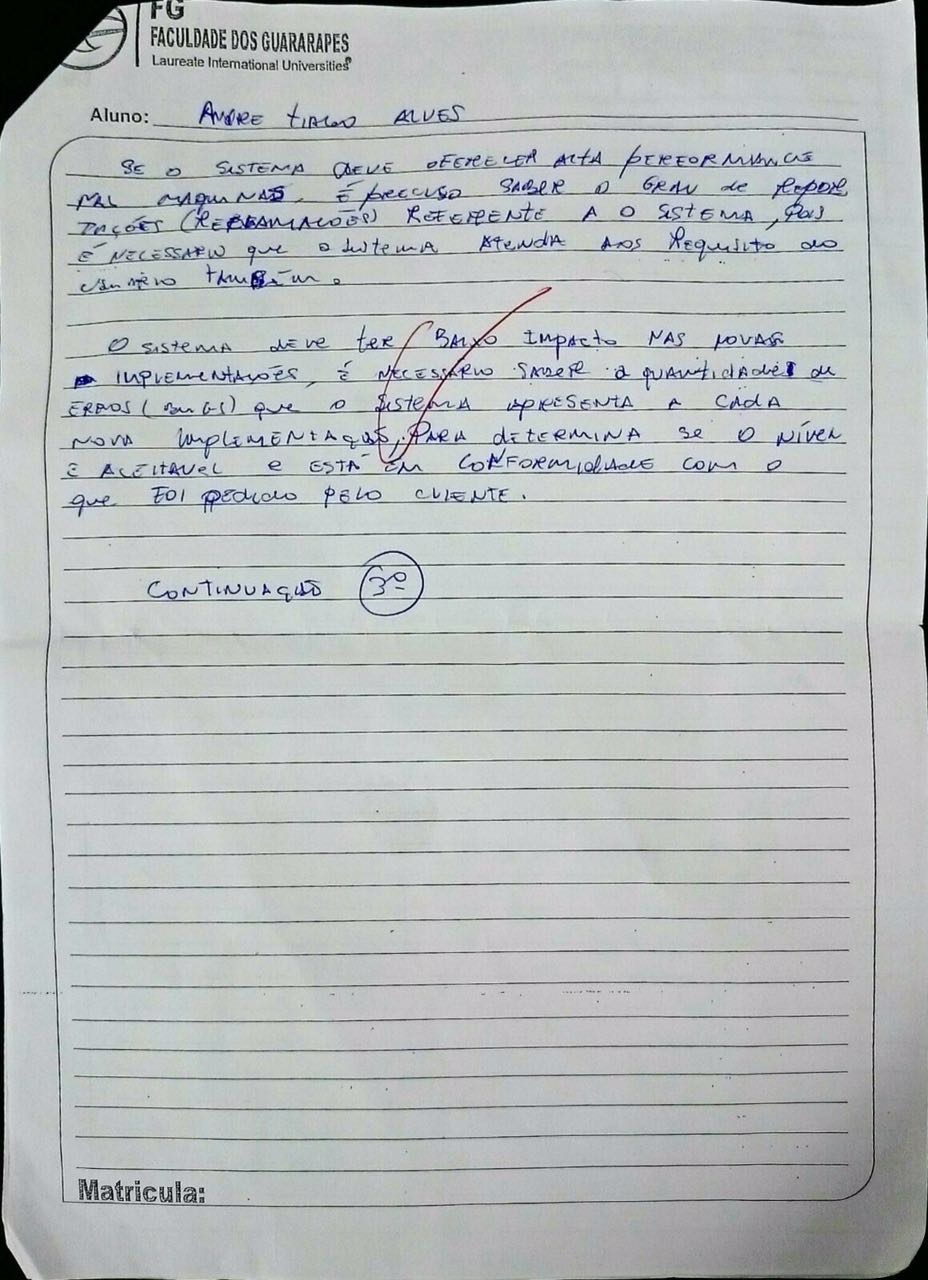 FG
FACULDADE DOS GUARARAPES
Laureate International Universities
Aluno: ANDRE TIAGO ALVES
SE O SISTEMA DEVE OFERECER ALTA PERFORMANCE
MAQUINAS, É PRECISO SABER O GRAU de REPOR
TAÇÕES (RECLAMAÇÕES) REFERENTE A O SISTEMA, POIS
É NECESSÁRIO que o sistema ATENDA AOS REQUISITO do
usuário também.
O SISTEMA DEVE TER BAIXO IMPACTO NAS NOVAS
IMPLEMENTAÇÕES, É NECESSÁRIO SABER a QUANTIDADE de
ERROS (BUGS) que o SISTEMA APRESENTA A CADA
NOVA IMPLEMENTAÇÃO, PARA DETERMINA SE O NÍVEL
E ACEITAVEL e ESTÁ EM CONFORMIDADE COM O
que FOI PEDIDO PELO CLIENTE.
CONTINUAÇÃO 3º
Matricula: